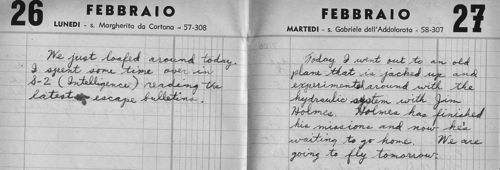 26 FEBBRAIO
LUNEDI - s. Margherita da Cortona - 57-308
We just loafed around today.
I spent some time over in
S-2 (Intelligence) reading the
latest escape bulletins.
FEBBRAIO 27
MARTEDI - s. Gabriele dell'Addolorata - 58-307
Today I went out to an old
plane that is jacked up and
experimented around with the
hydraulic system with Jim
Holmes. Holmes has finished
his missions and now he's
waiting to go home. We are
going to fly tomorrow.